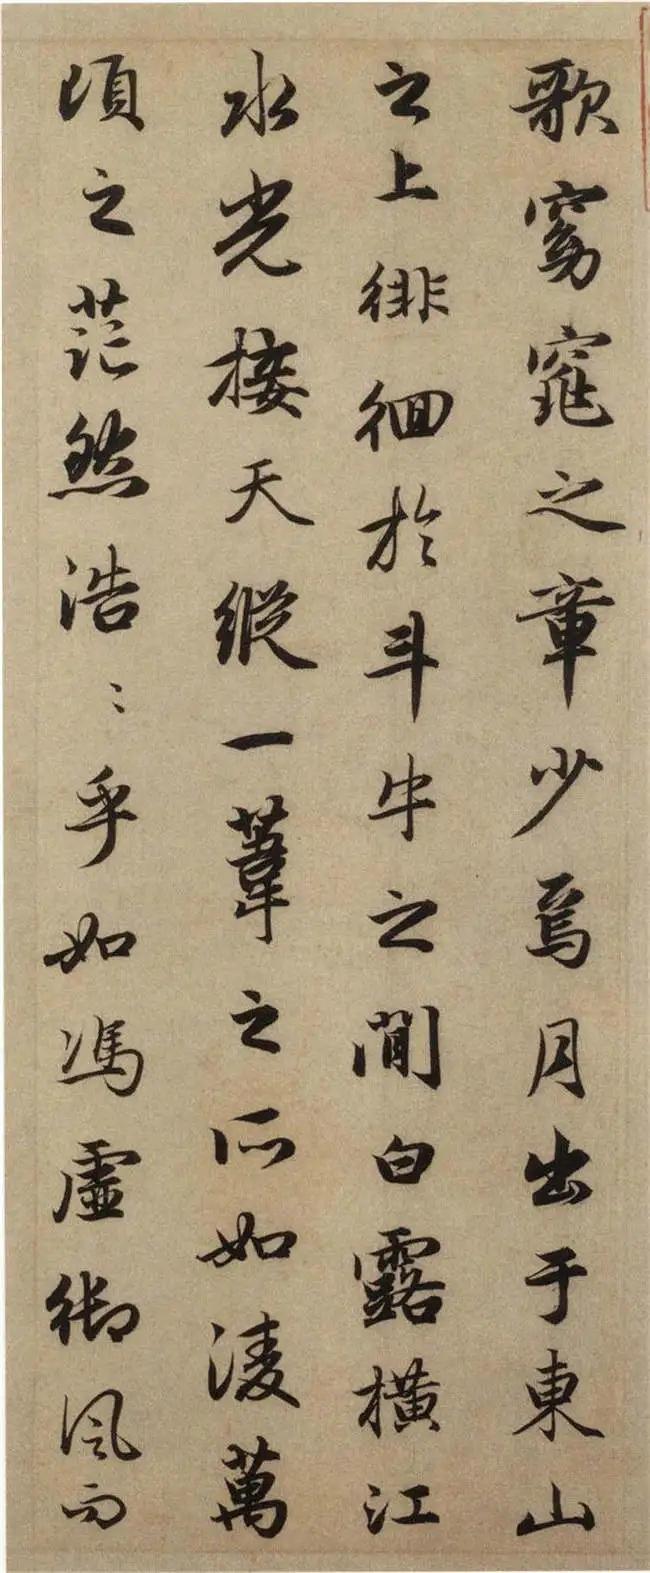 歌窈窕之章少焉月出于東山
之上徘徊於斗牛之間白露横江
水光接天縱一葦之所如凌萬
頃之茫然浩〻乎如馮虚御風而